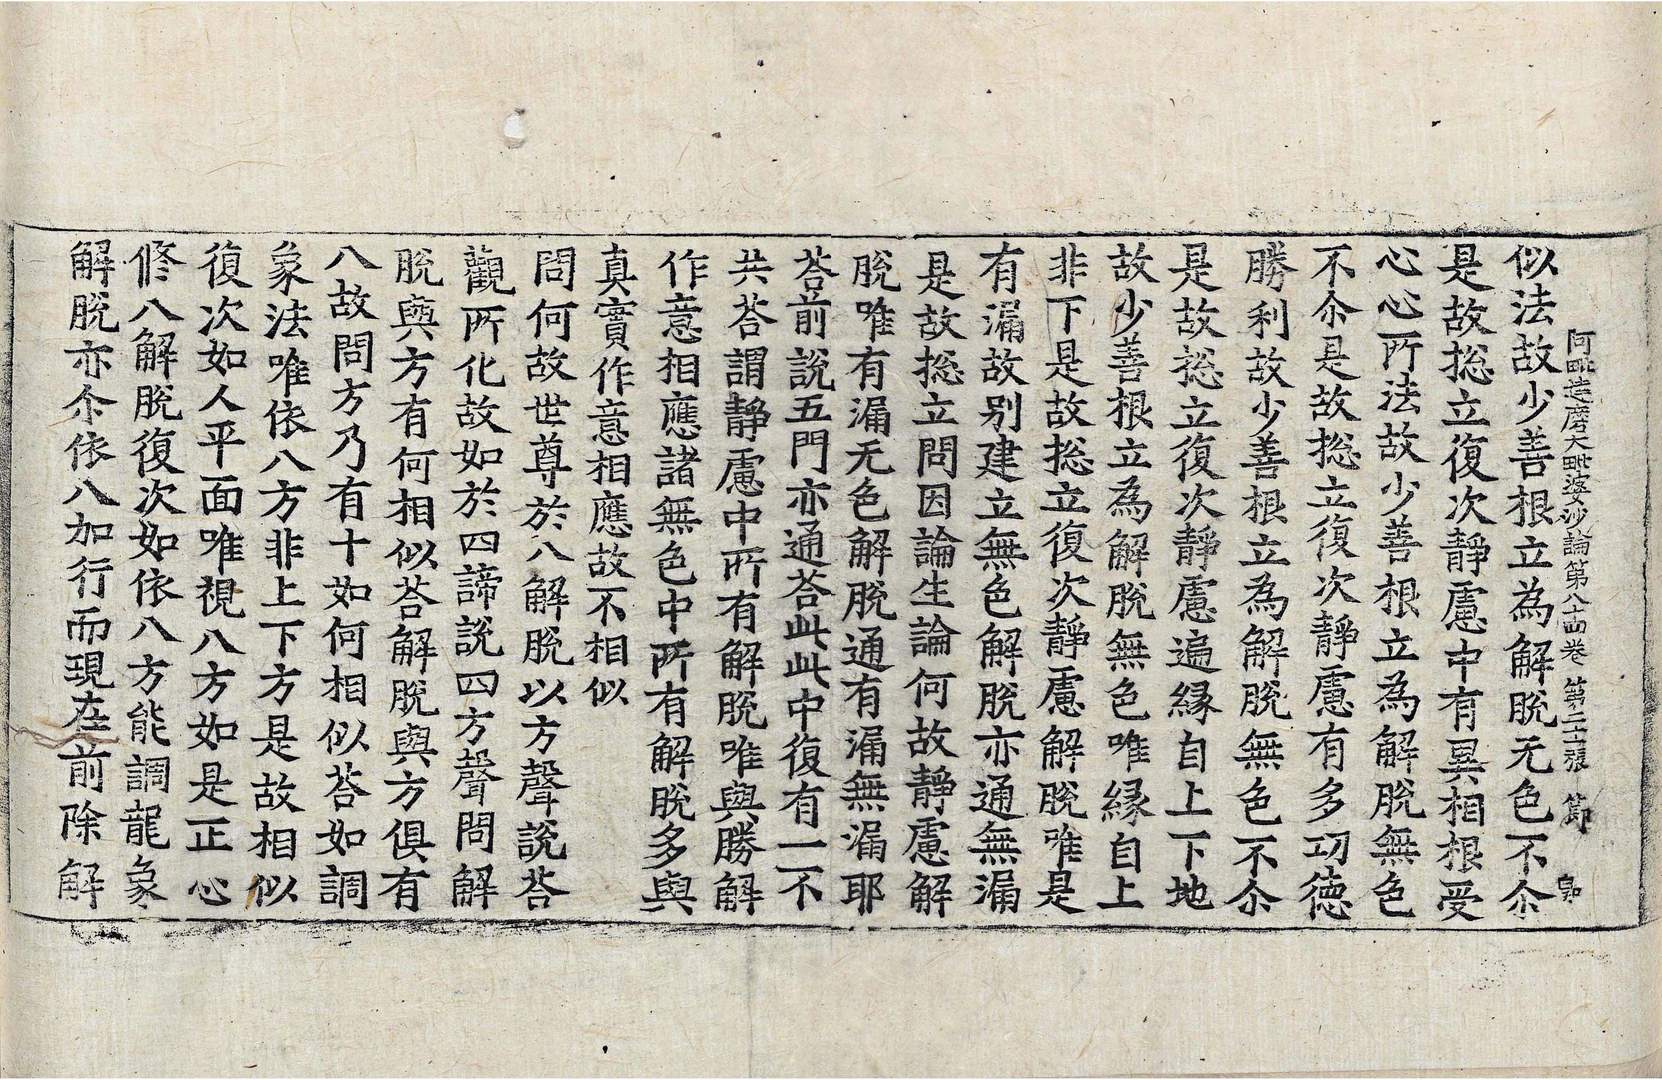 阿毗達磨大毗婆沙論第八十四卷 第二十張 節
似法故少善根立為解脫无色不尒
是故捴立復次靜慮中有異相根受
心心所法故少善根立為解脫無色
不尒是故捴立復次靜慮有多功德
勝利故少善根立為解脫無色不尒
是故捴立復次靜慮遍緣自上下地
故少善根立為解脫無色唯緣自上
非下是故捴立復次靜慮解脫唯是
有漏故別建立無色解脫亦通無漏
是故捴立問因論生論何故靜慮解
脫唯有漏无色解脫通有漏無漏耶
荅前說五門亦通荅此此中復有一不
共荅謂靜慮中所有解脫唯與勝解
作意相應諸無色中所有解脫多與
真實作意相應故不相似
問何故世尊於八解脫以方聲說荅
觀所化故如於四諦說四方聲問解
脫與方有何相似荅解脫與方俱有
八故問方乃有十如何相似荅如調
象法唯依八方非上下方是故相似
復次如人平面唯視八方如是正心
修八解脫復次如依八方能調龍象
解脫亦尒依八加行而現在前除解